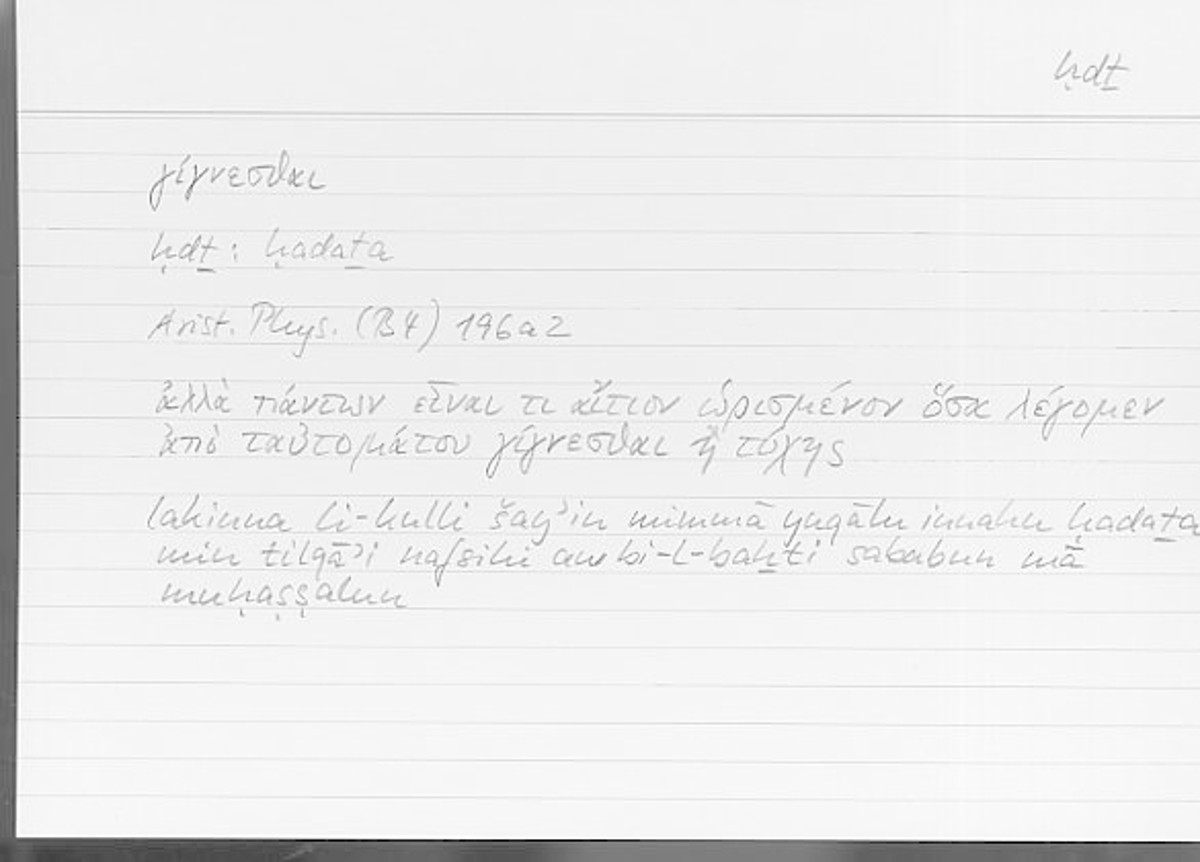 ḥdṯ
γίγνεσθαι
ḥdṯ : ḥadaṯa
Arist. Phys. (B4) 196a2
ἀλλὰ πάντων εἶναι τι αἴτιον ὡρισμένον ὅσα λέγομεν
ἀπὸ ταὐτομάτου γίγνεσθαι ἢ τύχης
lakinna li-kulli šayʾin mimmā yuqālu innahu ḥadaṯa
min tilqāʾi nafsihi aw bi-l-baḫti sababun mā
muḥaṣṣalun